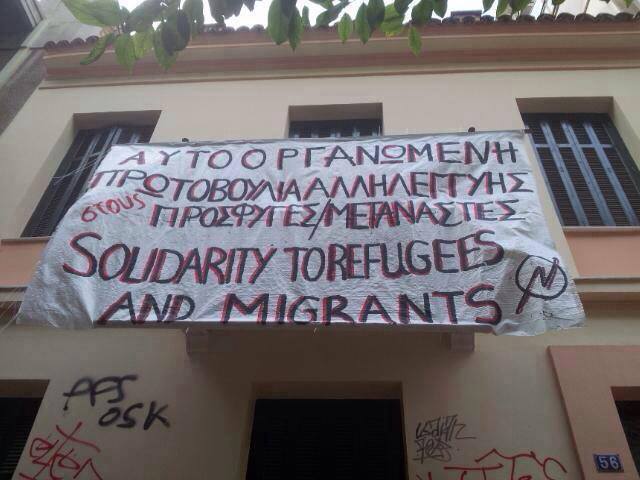 ΑΥΤΟΟΡΓΑΝΩΜΕΝΗ
ΠΡΩΤΟΒΟΥΛΙΑ ΑΛΛΗΛΕΓΓΥΗΣ
στους ΠΡΟΣΦΥΓΕΣ/ΜΕΤΑΝΑΣΤΕΣ
SOLIDARITY TO REFUGEES
AND MIGRANTS
OSK
56